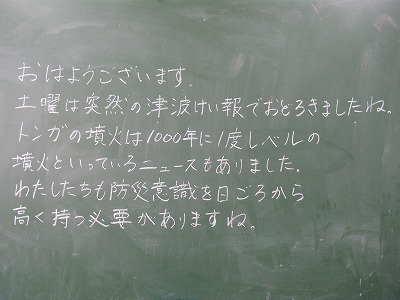 おはようございます。
土曜は突然の津波けい報でおどろきましたね。
トンガの墳火は1000年に1度レベルの
墳火といっているニュースもありました。
わたしたちも防災意識を日ごろから
高く持つ必要がありますね。